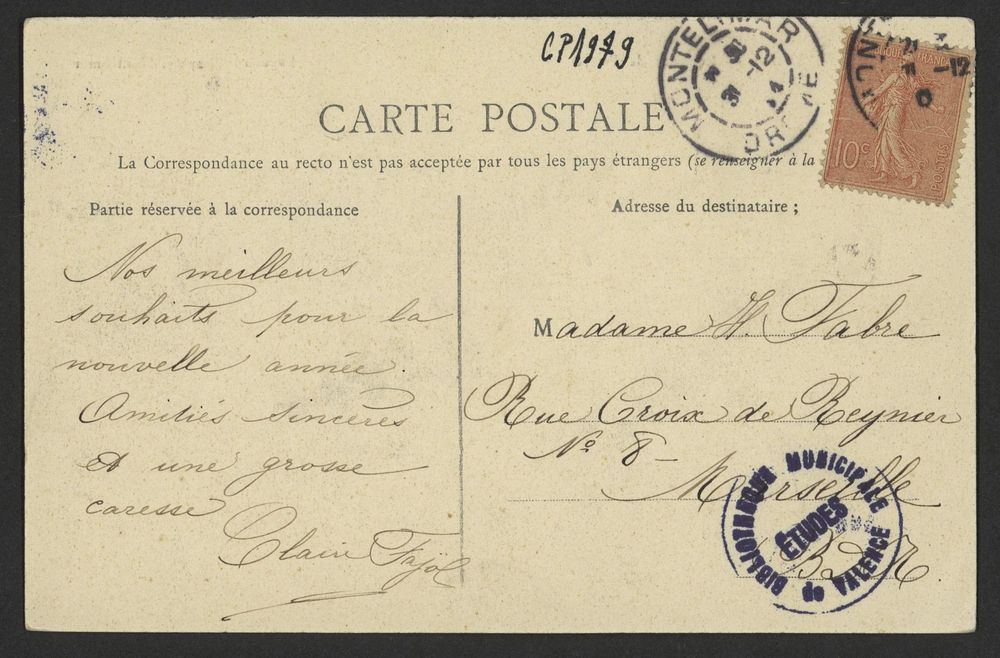 CP1979
MONTELIMAR
31 -12
DRÔME
POSTES
10c
CARTE POSTALE
La Correspondance au recto n'est pas acceptée par tous les pays étrangers (se renseigner à la
Partie réservée à la correspondance
Nos meilleurs
souhaits pour la
nouvelle année.
Amitiés sincères
et une grosse
caresse
Claire Fayol
Adresse du destinataire ;
Madame H. Fabre
Rue Croix de Reynier
No 8 -
Marseille
B D R.
BIBLIOTHEQUE MUNICIPALE
ÉTUDES
de VALENCE